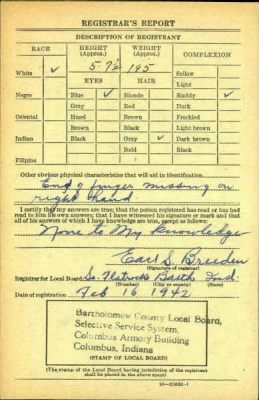 REGISTRAR'S REPORT
DESCRIPTION OF REGISTRANT
RACE HEIGHT (Approx.) WEIGHT (Approx.) COMPLEXION
White ✓ 5-7½ 195 Sallow
EYES HAIR Light
Negro Blue ✓ Blonde Ruddy ✓
Gray Red Dark
Oriental Hazel Brown Freckled
Brown Black Light brown
Indian Black Gray ✓ Dark brown
Bald Black
Filipino
Other obvious physical characteristics that will aid in identification
End of finger missing on
right hand
I certify that my answers are true; that the person registered has read or has had
read to him his own answers; that I have witnessed his signature or mark and that
all of his answers of which I have knowledge are true, except as follows:
None to My Knowledge
Earl S. Breeden
(Signature of registrar)
Registrar for Local Board Barth Ind.
(Number) (City or county) (State)
Date of registration Feb 16 1942
Bartholomew County Local Board,
Selective Service System,
Columbus Armory Building
Columbus, Indiana
(STAMP OF LOCAL BOARD)
(The stamp of the Local Board having jurisdiction of the registrant
shall be placed in the above space.)